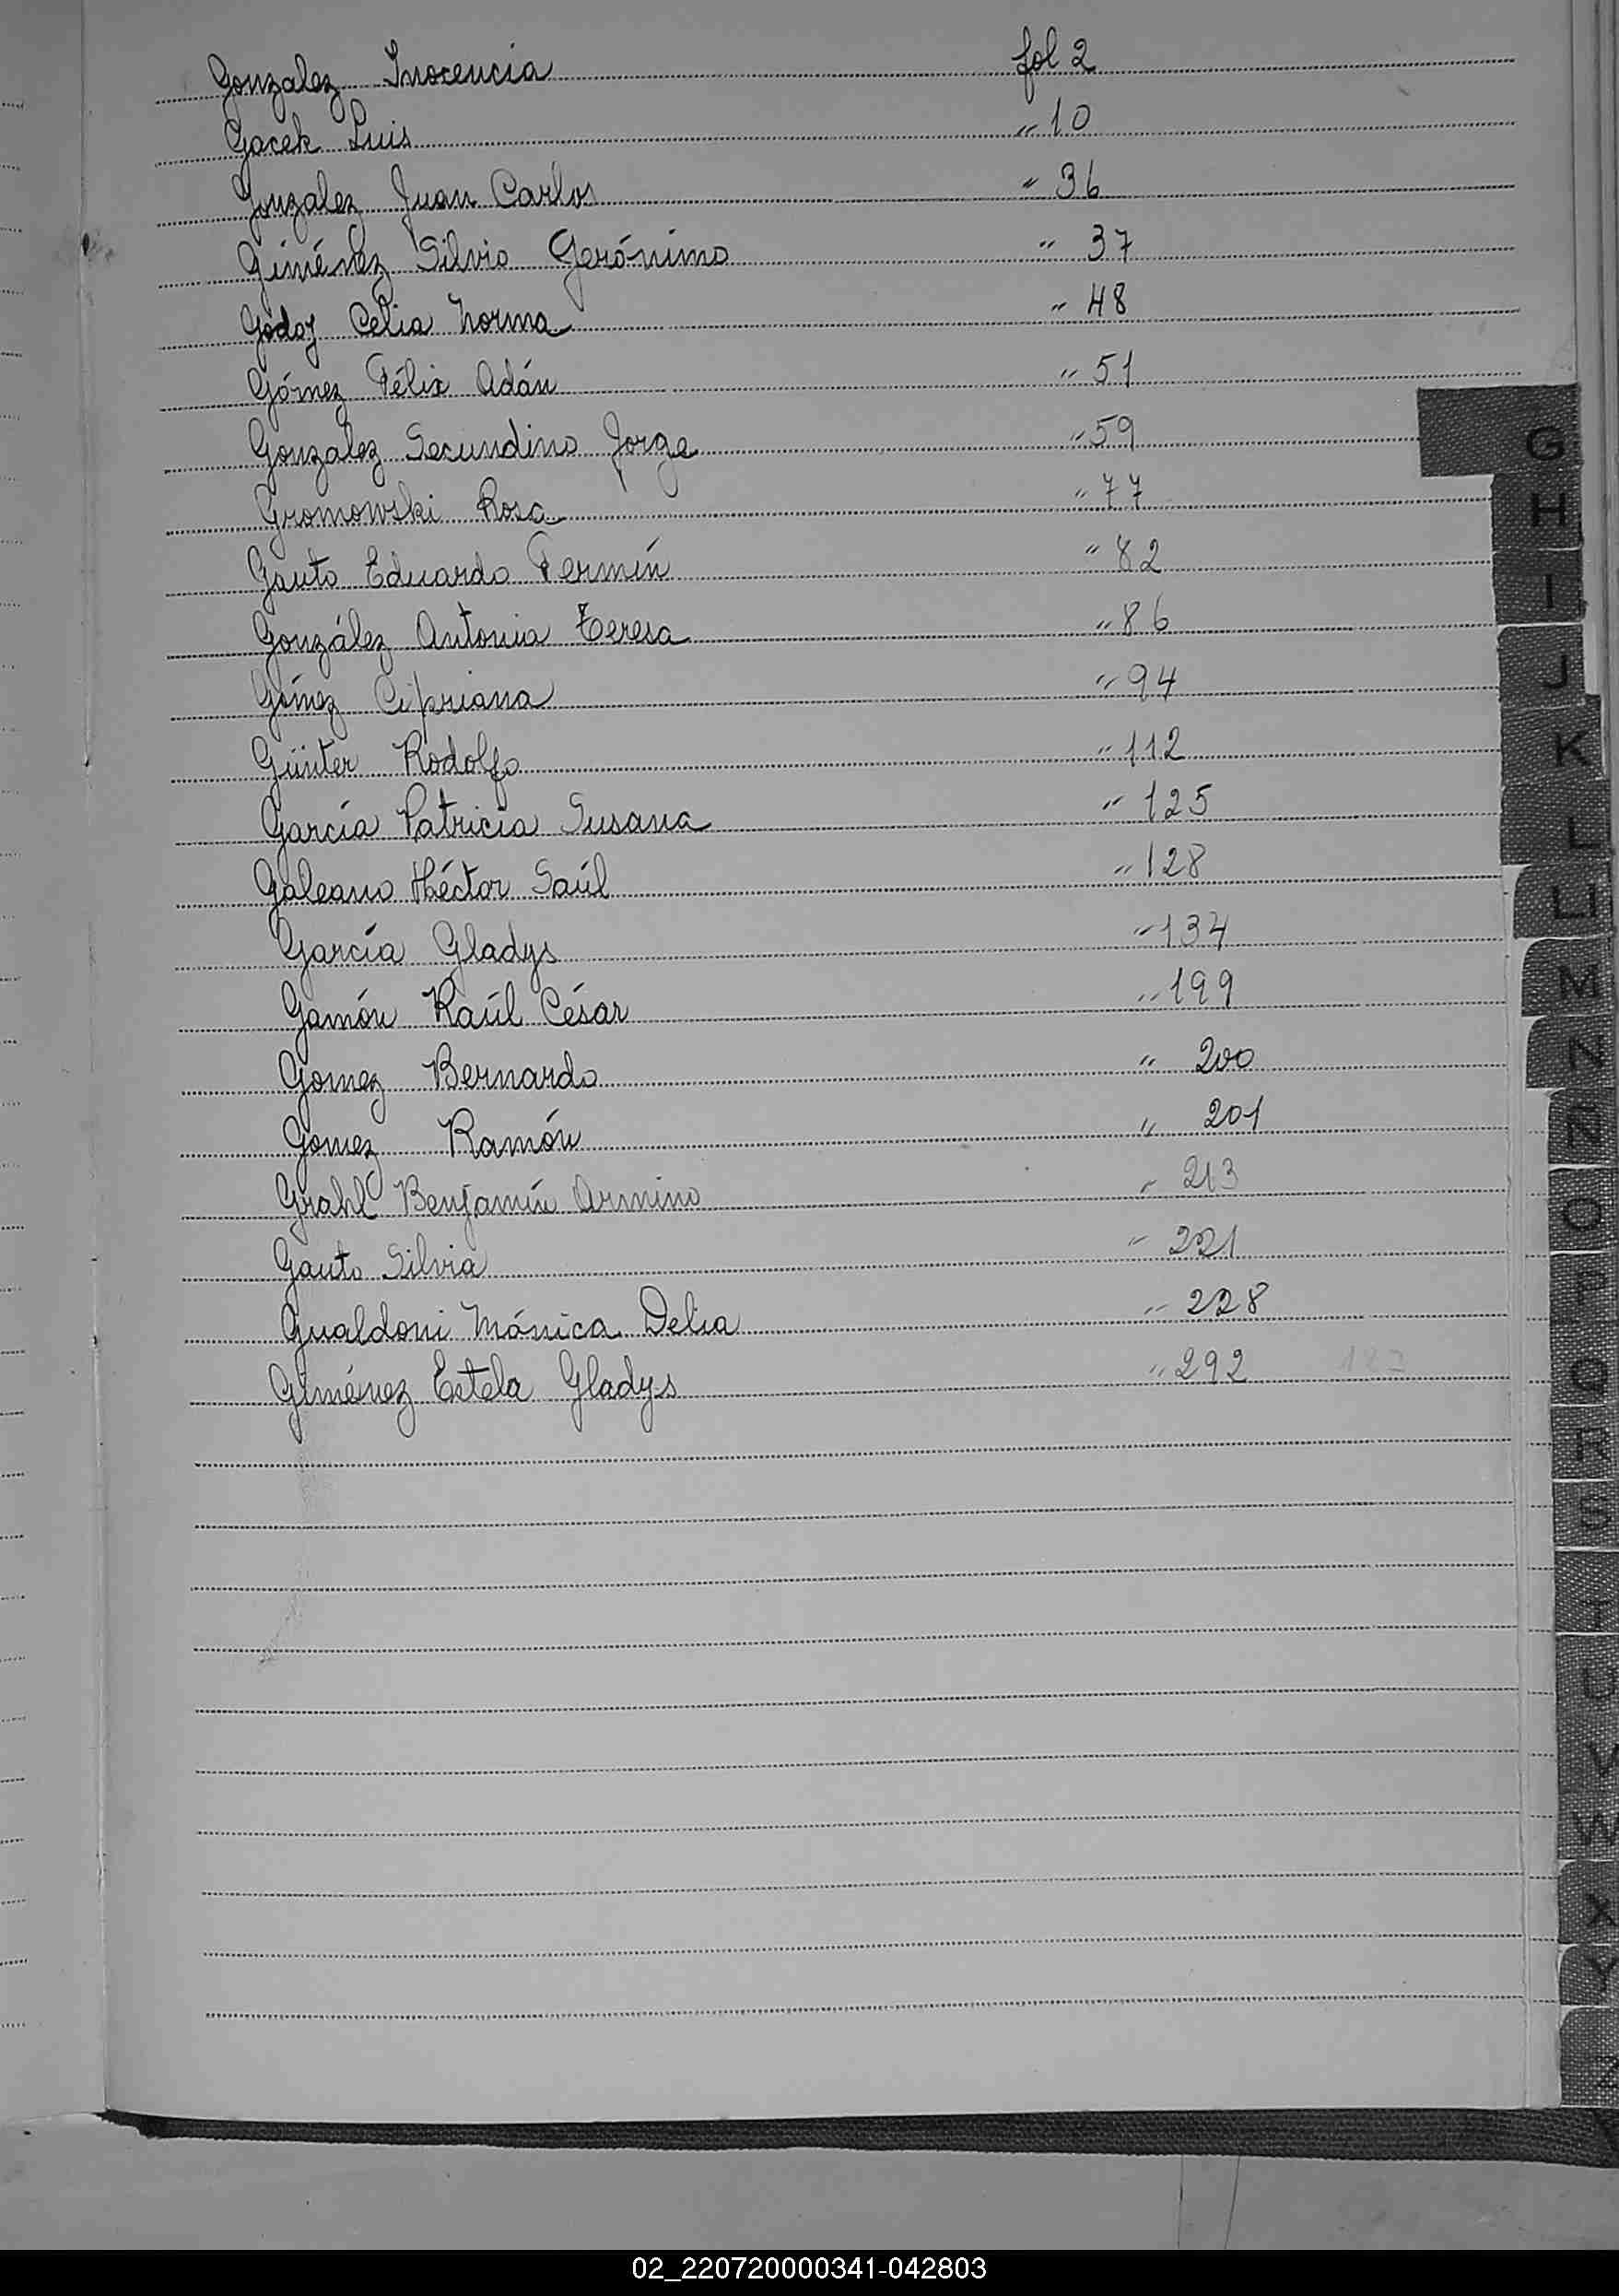 Gonzalez Inocencia fol 2
Gacek Luis " 10
Gonzalez Juan Carlos " 36
Giménez Silvio Gerónimo " 37
Godoy Celia Norma " 48
Gómez Félix Adán " 51
Gonzalez Secundino Jorge " 59
G
Gromowski Rosa " 77
H
Gauto Eduardo Fermín " 82
I
González Antonia Teresa " 86
Gómez Cipriana " 94
J
Günter Rodolfo " 112
K
García Patricia Susana " 125
L
Galeano Héctor Saúl " 128
LL
García Gladys " 134
Gamón Raúl César " 199
M
Gomez Bernardo " 200
N
Gomez Ramón " 201
Ñ
Grahl Benjamín Armino " 213
O
Gauto Silvia " 221
Gualdoni Mónica Delia " 228
P
Giménez Estela Gladys " 292 187
Q
R
S
T
U
V
W
X
Y
Z
02_220720000341-042803